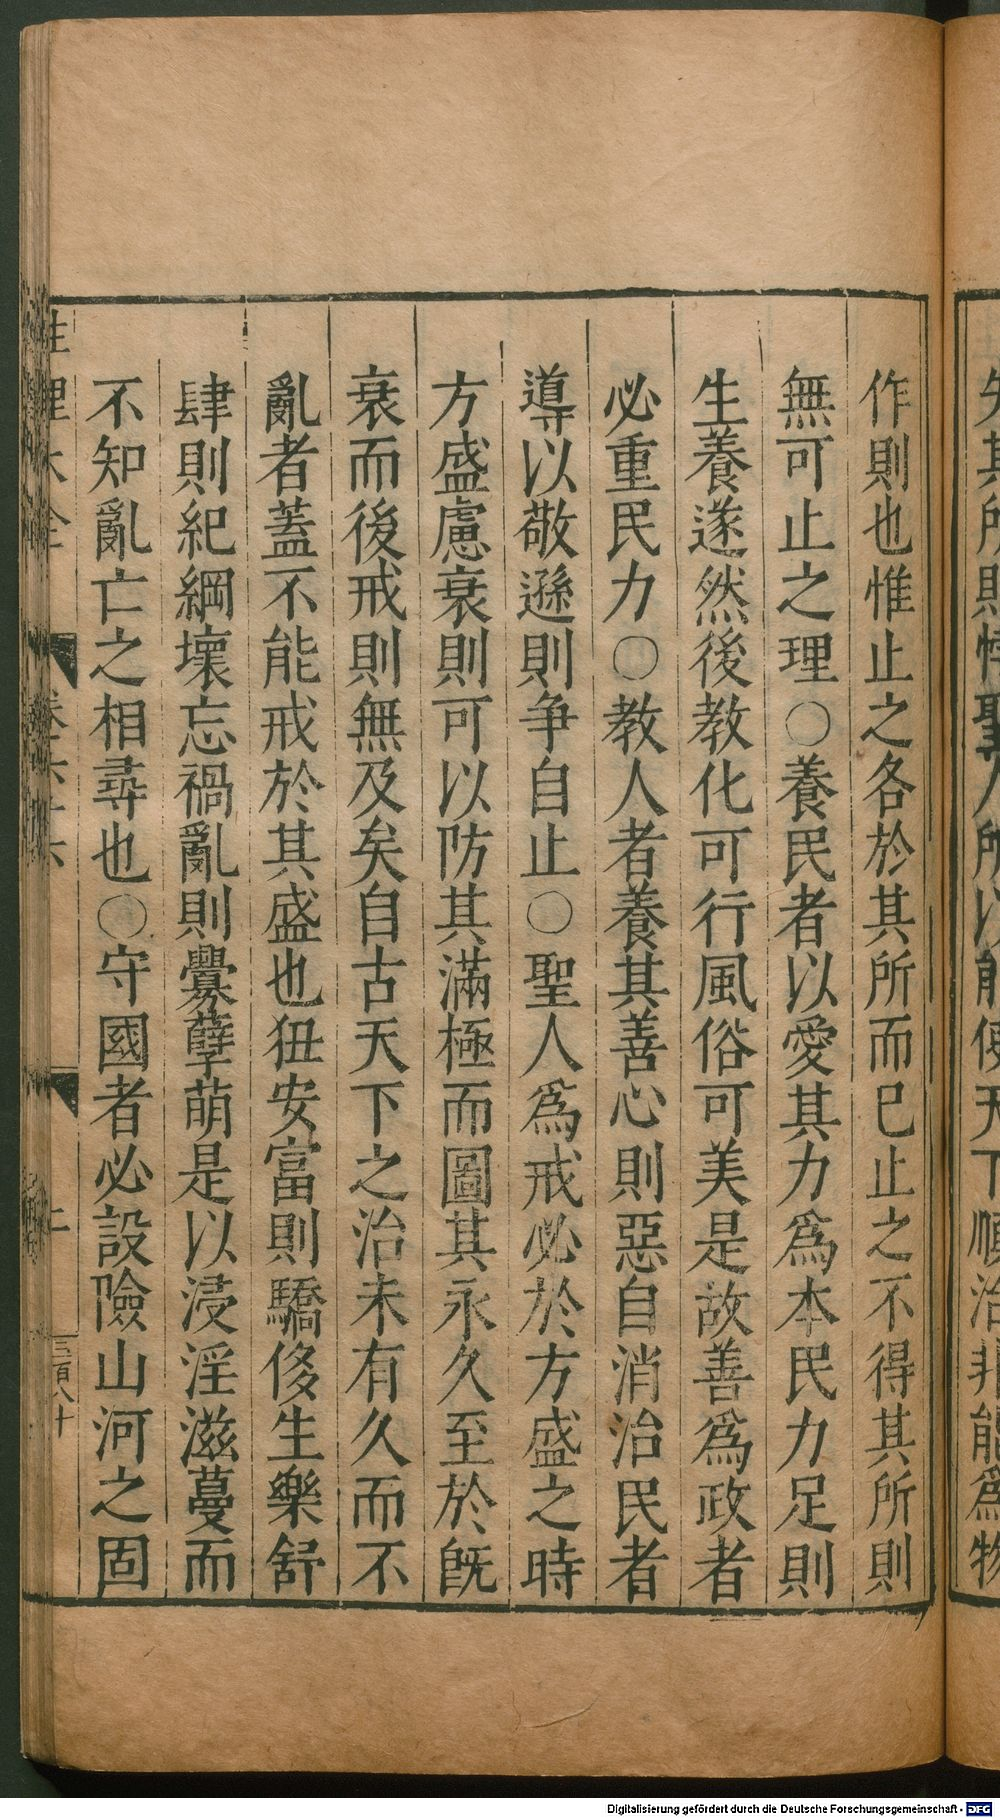 作則也惟止之各於其所而已止之不得其所則
無可止之理○養民者以愛其力爲本民力足則
生養遂然後教化可行風俗可美是故善爲政者
必重民力○教人者養其善心則惡自消治民者
導以敬遜則争自止○聖人爲戒必於方盛之時
方盛慮衰則可以防其滿極而圖其永久至於旣
衰而後戒則無及矣自古天下之治未有久而不
亂者蓋不能戒於其盛也狃安富則驕侈生樂舒
肆則紀綱壞忘禍亂則釁孽萌是以浸淫滋蔓而
不知亂亡之相尋也○守國者必設險山河之固
三百八十
Digitalisierung gefördert durch die Deutsche Forschungsgemeinschaft - DFG